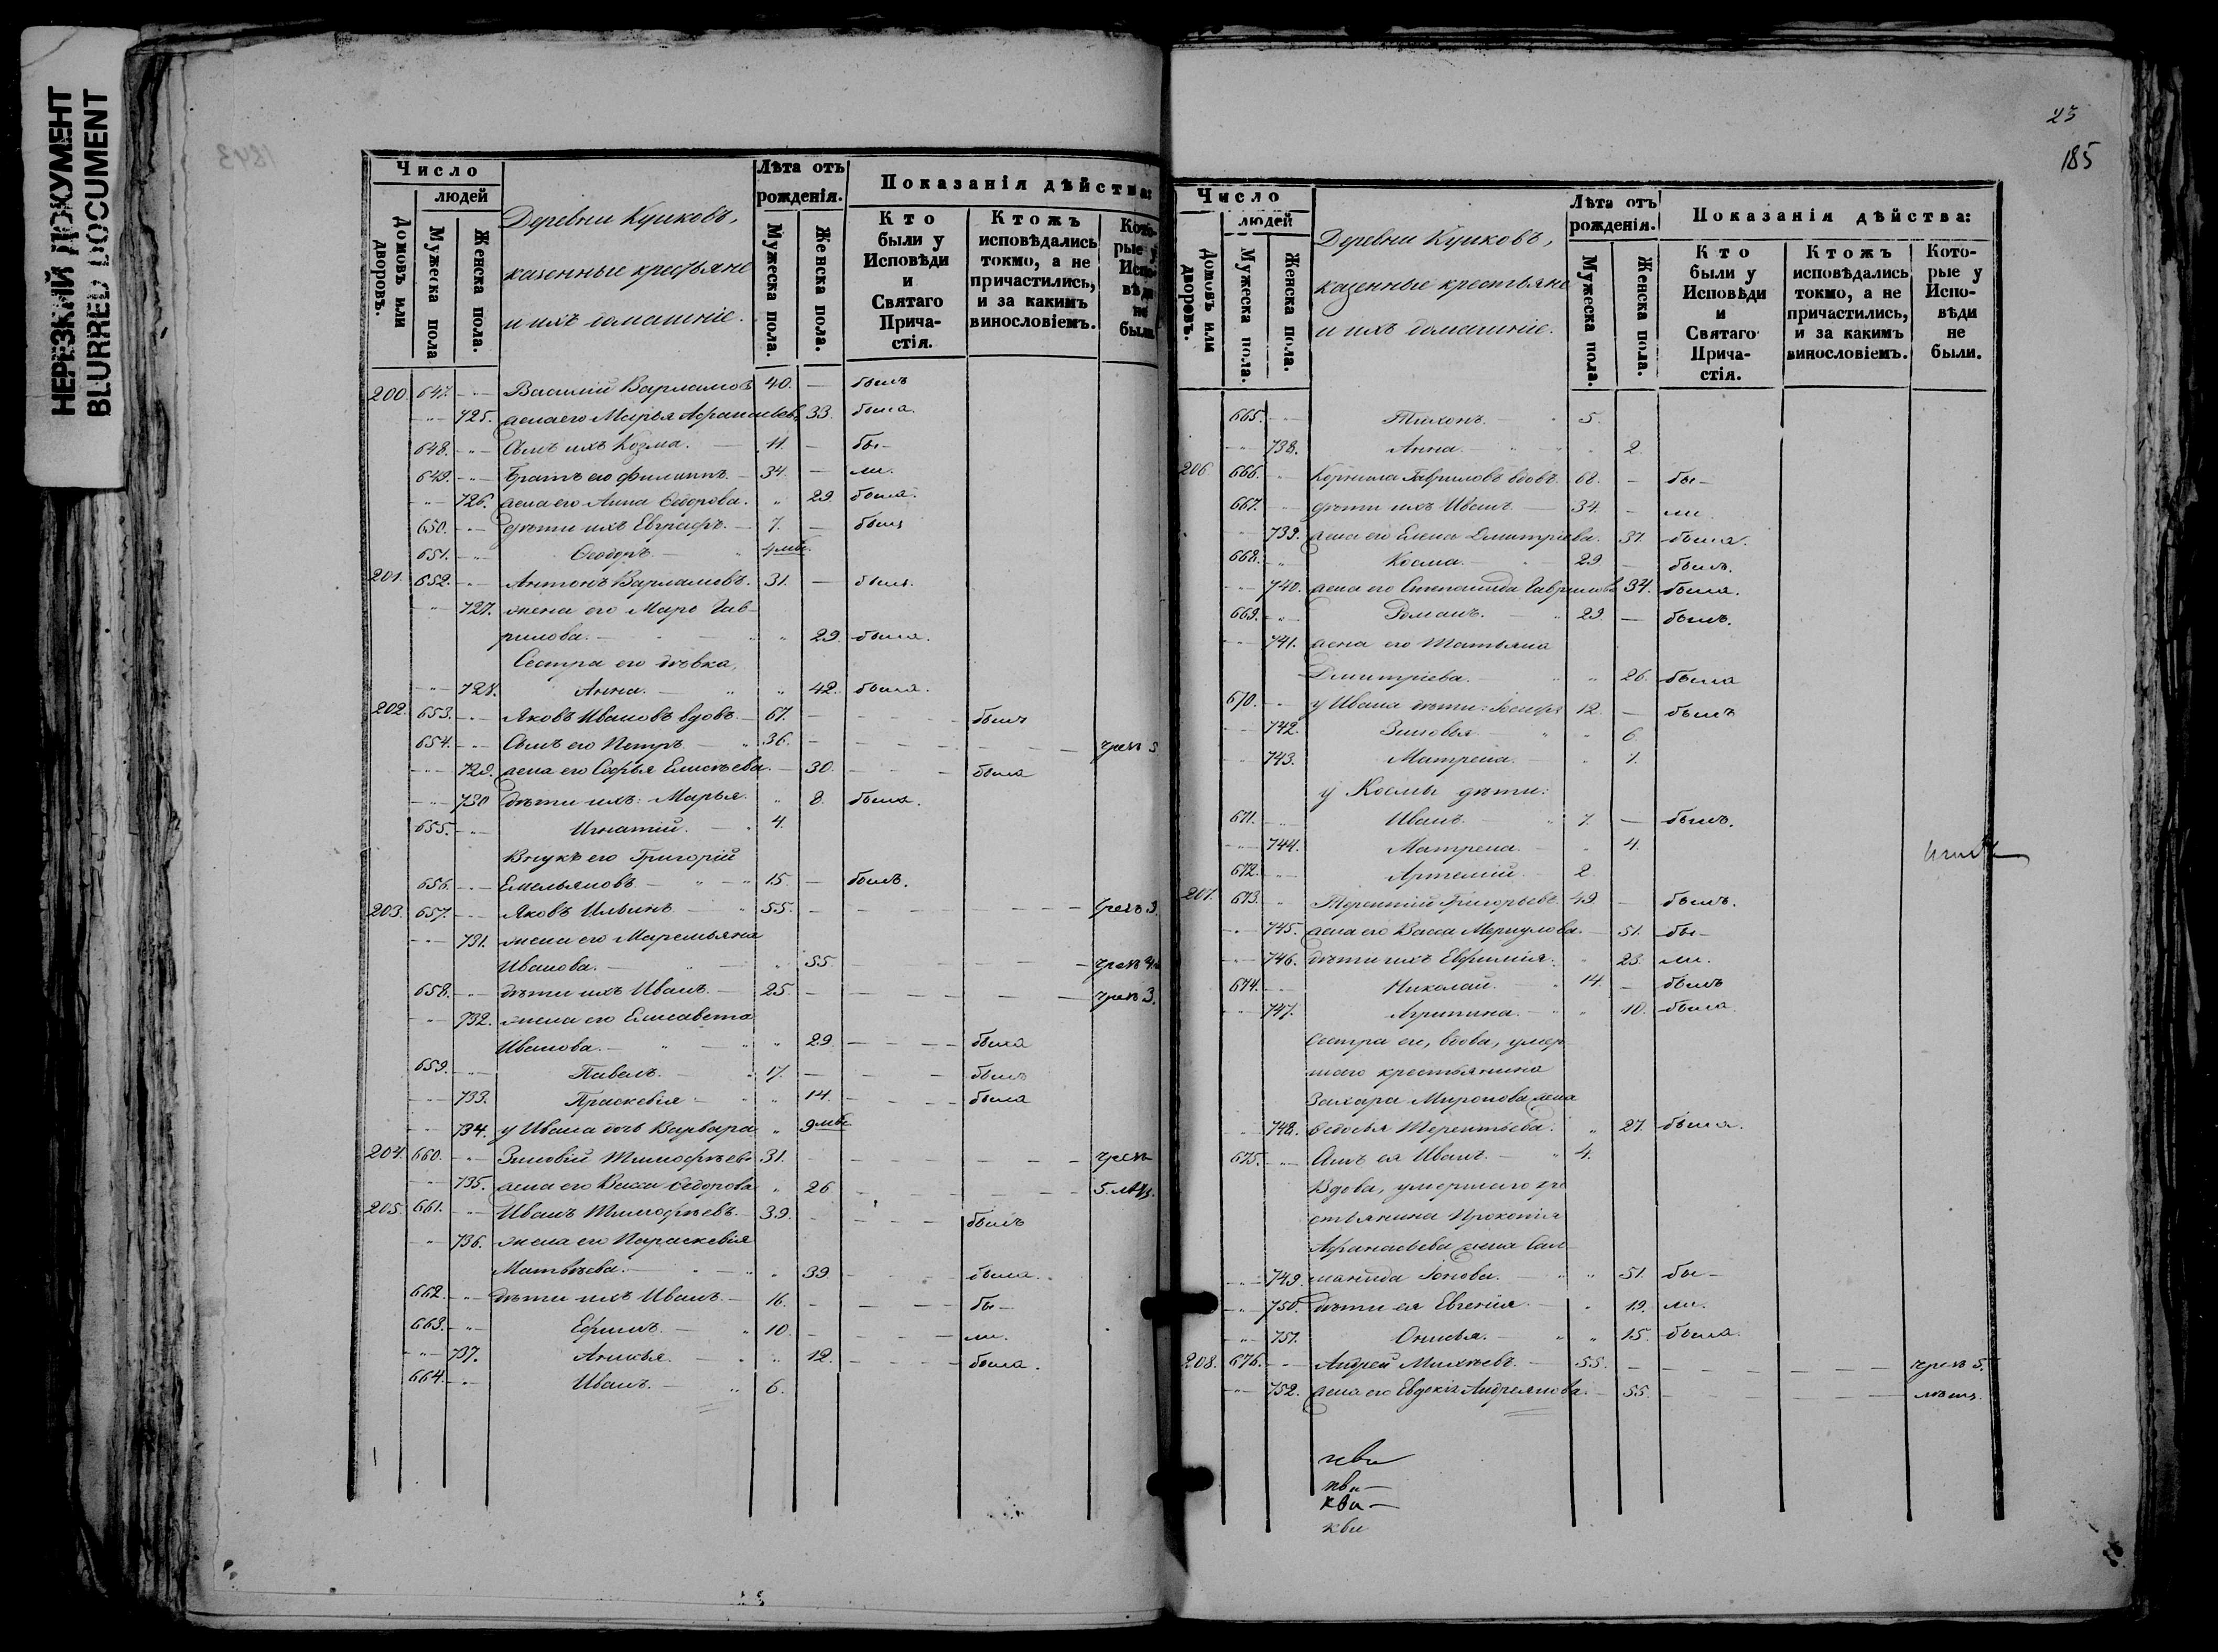 НЕРЕЗКИЙ ДОКУМЕНТ
BLURRED DOCUMENT
Число
людей
Домовъ или дворовъ.
Мужеска пола
Женска пола.
Деревни Куиковъ,
казенные крестьяне
и ихъ домашніе.
Лѣта отъ
рожденія.
Мужеска пола.
Женска пола.
Показанія дѣйства:
Кто были у Исповѣди и Святаго Прича-стія.
Ктожъ исповѣдались токмо, а не причастились, и за какимъ винословіемъ.
Кото-рые у Испо-вѣди не были.
200. 647. Василій Варламовъ 40. — былъ
725. жена его Марья Афанасьева 33. была.
648. Сынъ ихъ Козма. — 11. — бы-
649. Братъ его Филиппъ — 34. — ли.
726. жена его Анна Ѳедорова. 29 была.
650. дѣти ихъ Евграфъ. — 7. — былъ
651. Ѳеодоръ — 4 мѣс.
201. 652. Антонъ Варламовъ. 31. — былъ
727. жена его Марѳ Гав-
рилова. — 29. была.
Сестра его дѣвка,
728. Анна. — 42. была.
202. 653. Яковъ Ивановъ вдовъ — 67. — былъ
654. Сынъ его Петръ — 36. — чрезъ 5
729. жена его Софья Елисѣева. — 30. была
730 дѣти ихъ: Марья. 8. была.
655. Игнатій. — 4.
Внукъ его Григорій
656. Емельяновъ — 15. — былъ.
203. 657. Яковъ Ильинъ — 55. — чрезъ 3.
731. жена его Маремьяна
Иванова. — 55. — чрезъ 4
658. дѣти ихъ Иванъ. — 25. — чрезъ 3.
732. жена его Елисавета
Иванова. — 29. — была
659. Павелъ. — 17. — былъ
733. Праскевія — 14. — была
734. у Ивана дочь Варвара 9 мѣс.
204. 660. Зиновій Тимофѣевъ 31. — чрезъ
735. жена его Васса Ѳедорова 26 — 5. лѣтъ.
205. 661. Иванъ Тимофѣевъ. — 39. — былъ
736. жена его Параскевія
Матвѣева. — 39. — была.
662. дѣти ихъ Иванъ. — 16. — бы-
663. Ефимъ. — 10. — ли.
737. Анисья. — 12. — была.
664. Иванъ. — 6.
23
185
Число
людей
Домовъ или дворовъ.
Мужеска пола.
Женска пола.
Деревни Куиковъ,
казенные крестьяне
и ихъ домашніе.
Лѣта отъ
рожденія.
Мужеска пола.
Женска пола.
Показанія дѣйства:
Кто были у Исповѣди и Святаго Прича-стія.
Ктожъ исповѣдались токмо, а не причастились, и за какимъ винословіемъ.
Кото-рые у Испо-вѣди не были.
665. Тихонъ. — 5.
738. Анна. — 2
206. 666. Корнила Гавриловъ вдовъ. 68. — бы-
667. дѣти ихъ Иванъ. — 34. — ли.
739. жена его Елена Димитріева. 37. была.
668. Косма. — 29 — былъ.
740. жена его Степанида Гаврилова 34. была.
669. Романъ. — 29. — былъ.
741. жена его Татьяна
Димитріева. — 26. была
670. у Ивана дѣти: Іосифъ 12. — былъ
742. Зиновья. — 6.
743. Матрена. — 1.
у Космы дѣти:
671. Иванъ. — 7. — былъ.
744. Матрена. — 4.
672. Артемій. — 2.
207. 673. Терентій Григорьевъ. 49. — былъ.
745. жена его Васса Меркулова. — 51. бы-
746. дѣти ихъ Евфимія. 23. ли.
674. Николай. — 14. — былъ
747. Агрипина. — 10. была
Сестра ея, вдова, умер-
шаго крестьянина
Захара Миронова жена
748. Ѳедосья Терентьева. 27. была.
675. Сынъ ея Иванъ. — 4.
Вдова, умершаго кре-
стьянина Прокопія
Афанасьева жена Сал-
749. манида Іонова. — 51. бы-
750. дѣти ея Евгенія. — 19. ли.
751. Онисья. — 15. была.
208. 676. Андрей Михѣевъ. — 55. — чрезъ 5.
752. жена его Евдокія Андреянова. — 55. — лѣтъ.